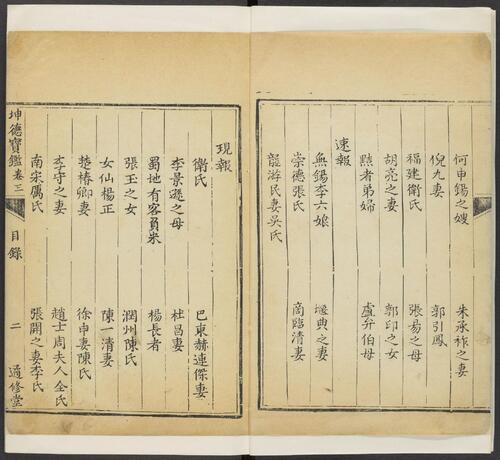 何申錫之嫂 朱承祚之妻
倪九妻 郭引鳳
福建衛氏 張易之母
胡亮之妻 郭印之女
黠者弟婦 盧弁伯母
速報
無錫李六娘 堰典之妻
崇德張氏 商臨清妻
龍游民妻吳氏
現報
衛氏 巴東赫連傑妻
李景遜之母 杜昌妻
蜀地有客負米 楊長者
張玉之女 潤州陳氏
女仙楊正 陳一清妻
楚椿卿妻 徐申妻陳氏
李守之妻 趙士周夫人仝氏
南宋厲氏 張闓之妻李氏
坤德寶鑑 卷三 目錄 二 適修堂